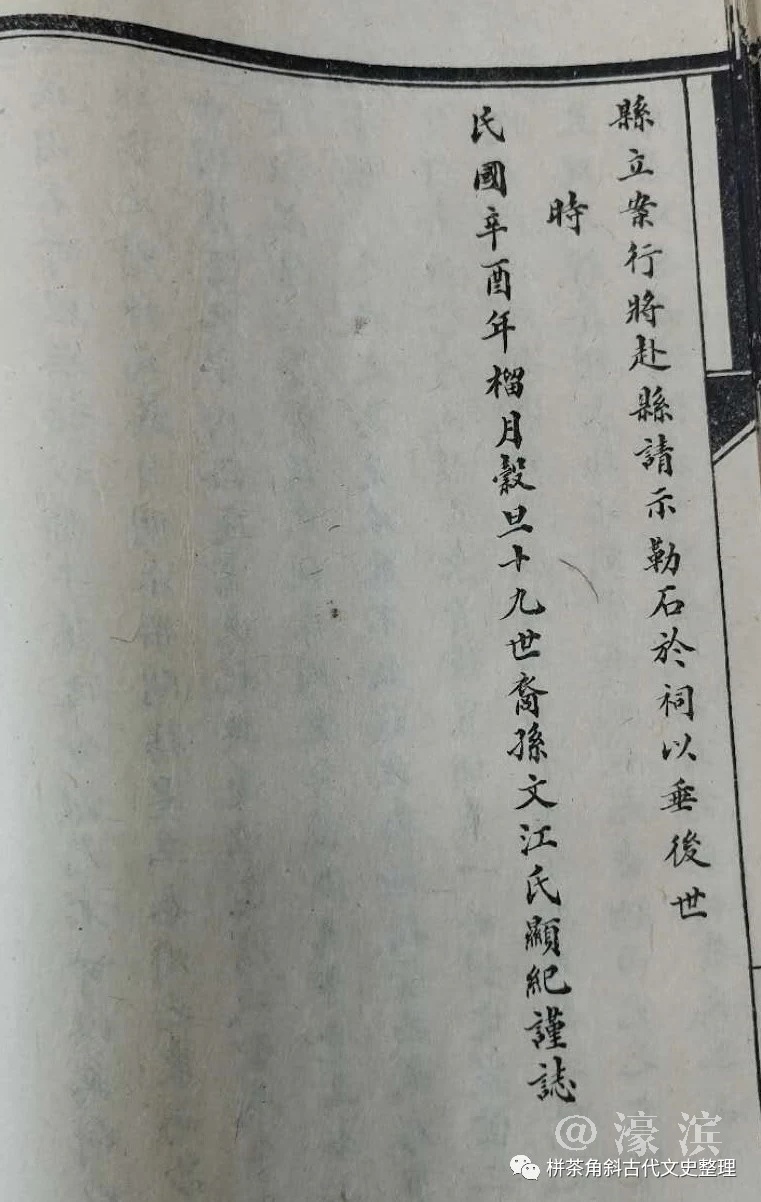 縣立案行將赴縣請示勒石於祠以垂後世
時
民國辛酉年榴月穀旦十九世裔孫文江氏顯紀謹誌
@濠滨
栟茶角斜古代文史整理